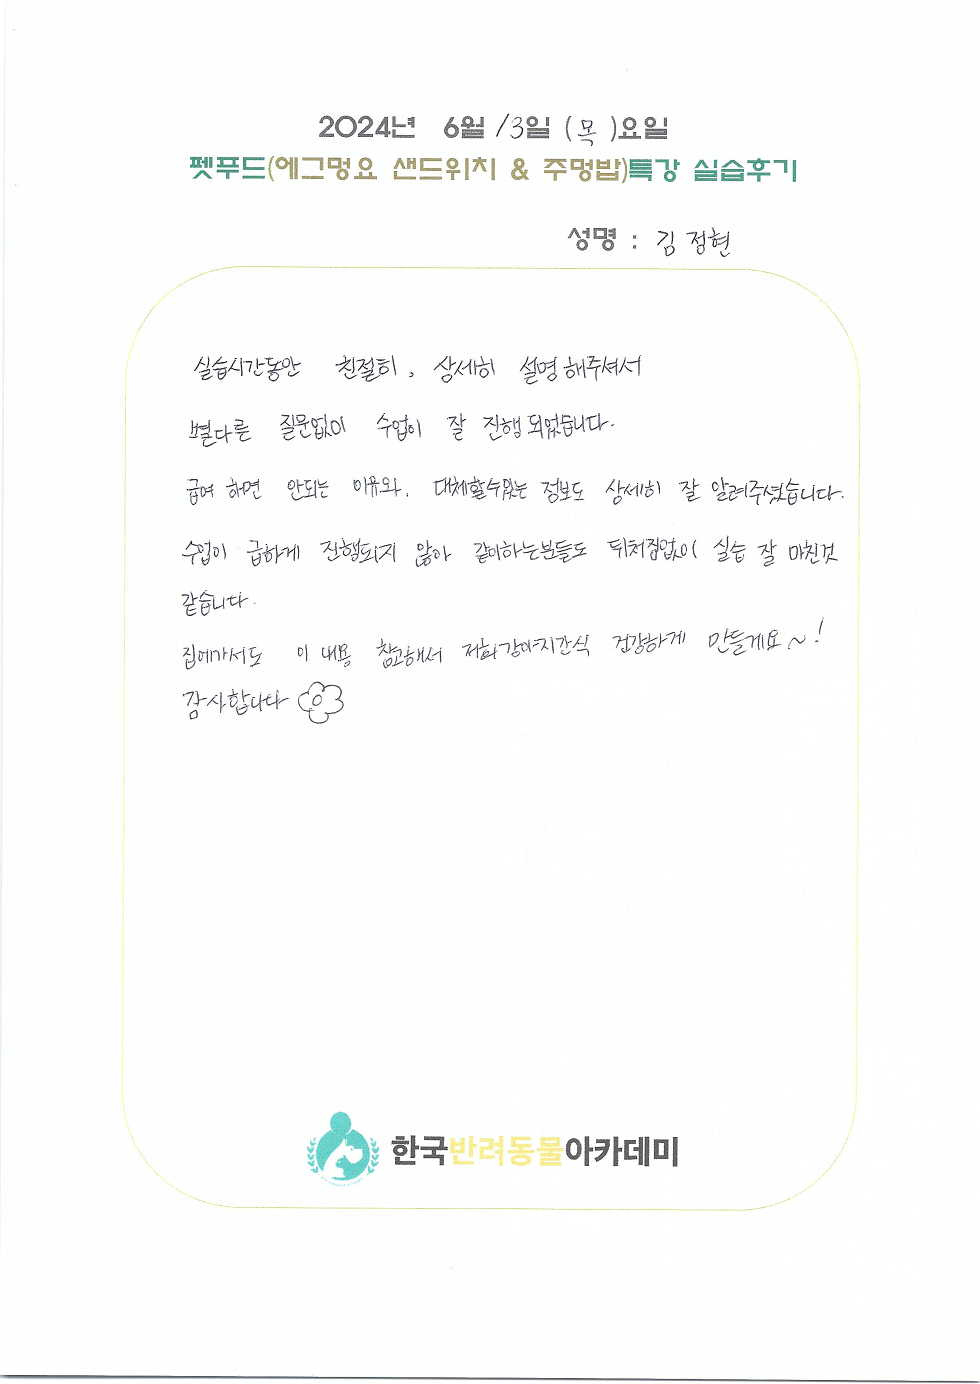 2024년 6월 13일 (목)요일
펫푸드(에그멍요 샌드위치 & 주멍밥)특강 실습후기
성명 : 김정현
실습시간동안 친절히, 상세히 설명해주셔서
별다른 질문없이 수업이 잘 진행되었습니다.
급여 하면 안되는 이유와, 대체할수있는 정보도 상세히 잘 알려주셨습니다.
수업이 급하게 진행되지 않아 같이하는분들도 뒤처짐없이 실습 잘 마친것
같습니다.
집에가서도 이 내용 참고해서 저희강아지간식 건강하게 만들게요~!
감사합니다
한국반려동물아카데미